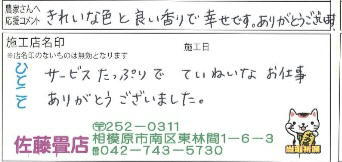 農家さんへ
応援コメント
きれいな色と良い香りで幸せです。ありがとうございます
施工店名印
施工日
※店名印のないものは無効となります
ひとこと
サービスたっぷりで ていねいなお仕事
ありがとうございました。
佐藤畳店
〒252-0311
相模原市南区東林間1-6-3
☎042-743-5730